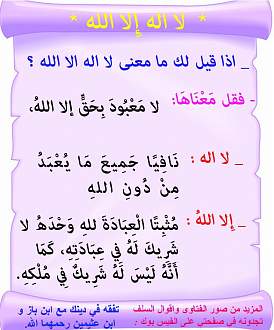 * لا اله إلا الله *
_ اذا قيل لك ما معنى لا اله الا الله ؟
- فقل مَعْنَاهَا: لا مَعْبُودَ بِحَقٍّ إلا اللهُ،
_ لا اله : نَافِيًا جَمِيعَ مَا يُعْبَدُ
مِنْ دُونِ اللهِ
_ إلا اللهُ : مُثْبِتًا الْعِبَادَةَ للهِ وَحْدَهُ لا
شَرِيكَ لَهُ فِي عِبَادَتِهِ، كَمَا
أَنَّهُ لَيْسَ لَهُ شَرِيكٌ فِي مُلْكِهِ.
المزيد من صور الفتاوى واقوال السلف
تجدونه في صفحتي على الفيس بوك :
تفقه في دينك مع ابن باز و
ابن عثيمين رحمهما الله.